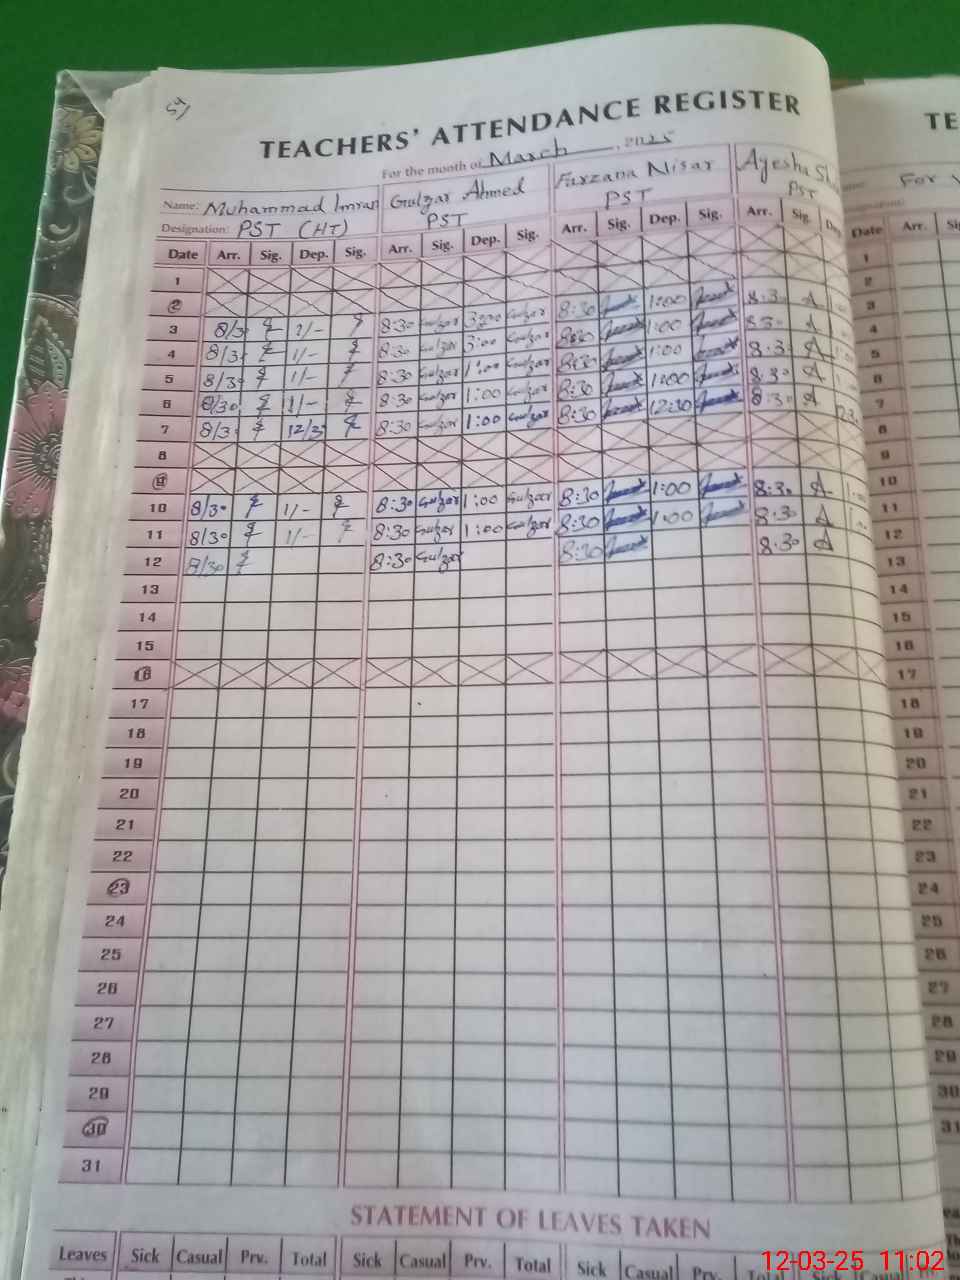 57
TEACHERS' ATTENDANCE REGISTER
For the month of March, 2025
Name: Muhammad Imran Gulzar Ahmed Farzana Nisar Ayesha
Designation: PST (HT) PST PST PST
Date Arr. Sig. Dep. Sig. Arr. Sig. Dep. Sig. Arr. Sig. Dep. Sig. Arr. Sig.
1
2
3 8/30 1/- 8:30 Gulzar 3:00 Gulzar 8:30 1:00 8:30 A
4 8/30 1/- 8:30 Gulzar 3:00 Gulzar 8:30 1:00 8:30 A
5 8/30 1/- 8:30 Gulzar 1:00 Gulzar 8:30 1:00 8:30 A
6 8/30 1/- 8:30 Gulzar 1:00 Gulzar 8:30 1:00 8:30 A
7 8/30 12/30 8:30 Gulzar 1:00 Gulzar 8:30 12:30 8:30 A
8
9
10 8/30 1/- 8:30 Gulzar 1:00 Gulzar 8:30 1:00 8:30 A
11 8/30 1/- 8:30 Gulzar 1:00 Gulzar 8:30 1:00 8:30 A
12 8/30 8:30 Gulzar 8:30 8:30 A
13
14
15
16
17
18
19
20
21
22
23
24
25
26
27
28
29
30
31
STATEMENT OF LEAVES TAKEN
Leaves Sick Casual Prv. Total Sick Casual Prv. Total Sick Casual Prv. Total
TE
For
Date Arr.
1
2
3
4
5
6
7
8
9
10
11
12
13
14
15
16
17
18
19
20
21
22
23
24
25
26
27
28
29
30
31
12-03-25 11:02